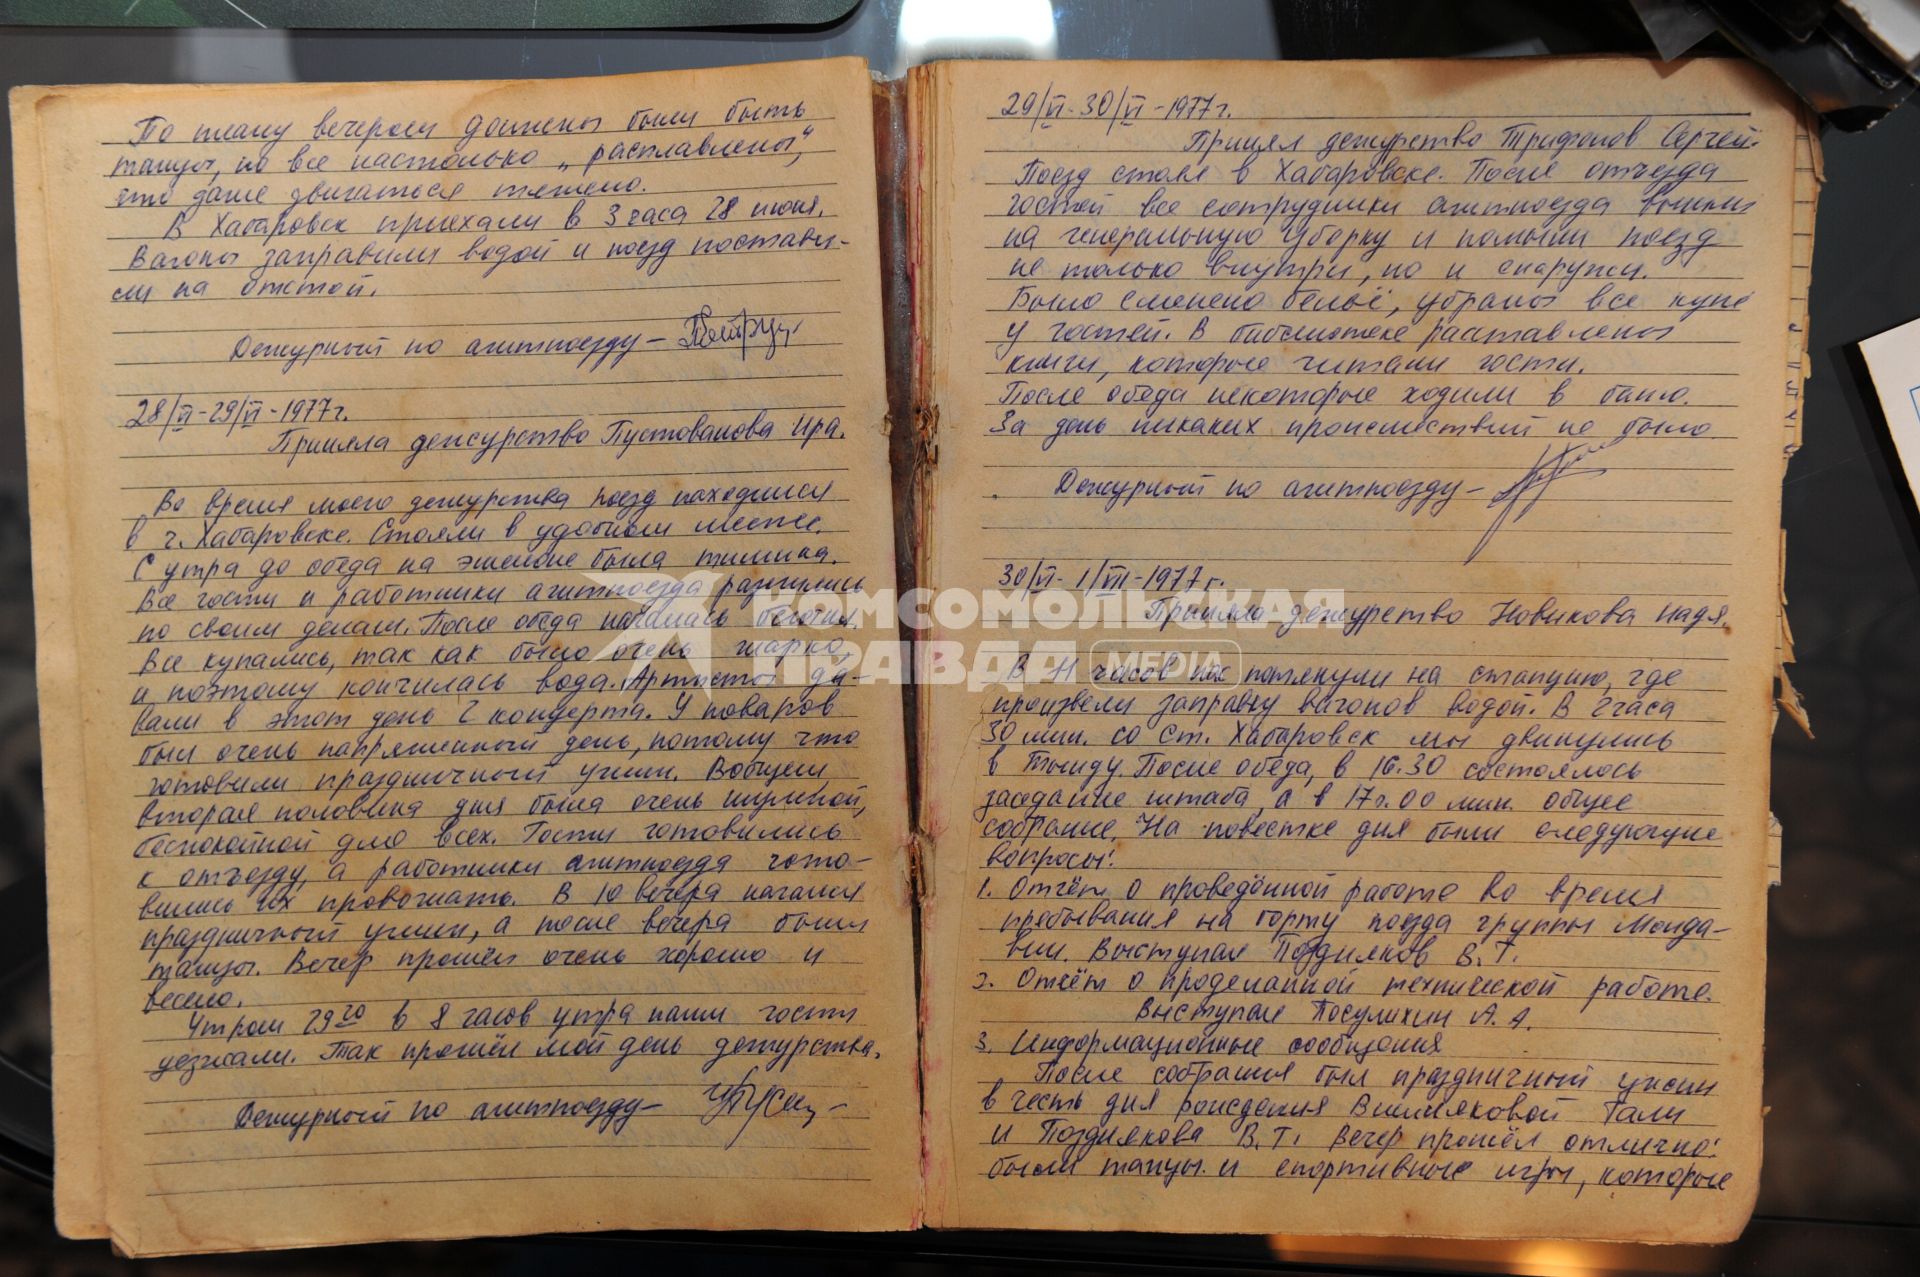 По плану вечером должны были быть
танцы, но все настолько „расплавлены“,
что даже двигаться тяжело.
В Хабаровск приехали в 3 часа 28 июня.
Вагоны заправили водой и поезд постави-
ли на отстой.
Дежурный по агитпоезду –
28/VI-29/VI-1977г.
Приняла дежурство Пустовалова Ира.
Во время моего дежурства поезд находился
в г. Хабаровске. Стояли в удобном месте.
С утра до обеда на эшелоне была тишина.
Все гости и работники агитпоезда разошлись
по своим делам. После обеда началась беготня.
Все купались, так как было очень жарко,
и поэтому кончилась вода. Артисты да-
вали в этот день 2 концерта. У поваров
был очень напряженный день, потому что
готовили праздничный ужин. Вобщем
вторая половина дня была очень шумной,
беспокойной для всех. Гости готовились
к отъезду, а работники агитпоезда гото-
вились их провожать. В 10 вечера начался
праздничный ужин, а после вечера были
танцы. Вечер прошёл очень хорошо и
весело.
Утром 29го в 8 часов утра наши гости
уезжали. Так прошёл мой день дежурства.
Дежурный по агитпоезду –
29/VI-30/VI-1977г.
Принял дежурство Трифонов Сергей.
Поезд стоял в Хабаровске. После отъезда
гостей все сотрудники агитпоезда вышли
на генеральную уборку и помыли поезд
не только внутри, но и снаружи.
Было сменено бельё, убраны все купе
у гостей. В библиотеке расставлены
книги, которые читали гости.
После обеда некоторые ходили в баню.
За день никаких происшествий не было.
Дежурный по агитпоезду –
30/VI-1/VII-1977г.
Приняла дежурство Новикова Надя.
В 11 часов нас потянули на станцию, где
произвели заправку вагонов водой. В 2 часа
30 мин. со ст. Хабаровск мы двинулись
в Тынду. После обеда, в 16.30 состоялось
заседание штаба, а в 17ч.00 мин. общее
собрание. На повестке дня были следующие
вопросы:
1. Отчёт о проведённой работе во время
пребывания на борту поезда группы Молда-
вии. Выступал Поздняков В.Т.
2. Отчёт о проделанной технической работе.
Выступал Посулихин А.А.
3. Информационные сообщения
После собрания был праздничный ужин
в честь дня рождения Вишняковой Гали
и Позднякова В.Т. Вечер прошёл отлично:
были танцы и спортивные игры, которые
КОМСОМОЛЬСКАЯ
ПРАВДА MEDIA